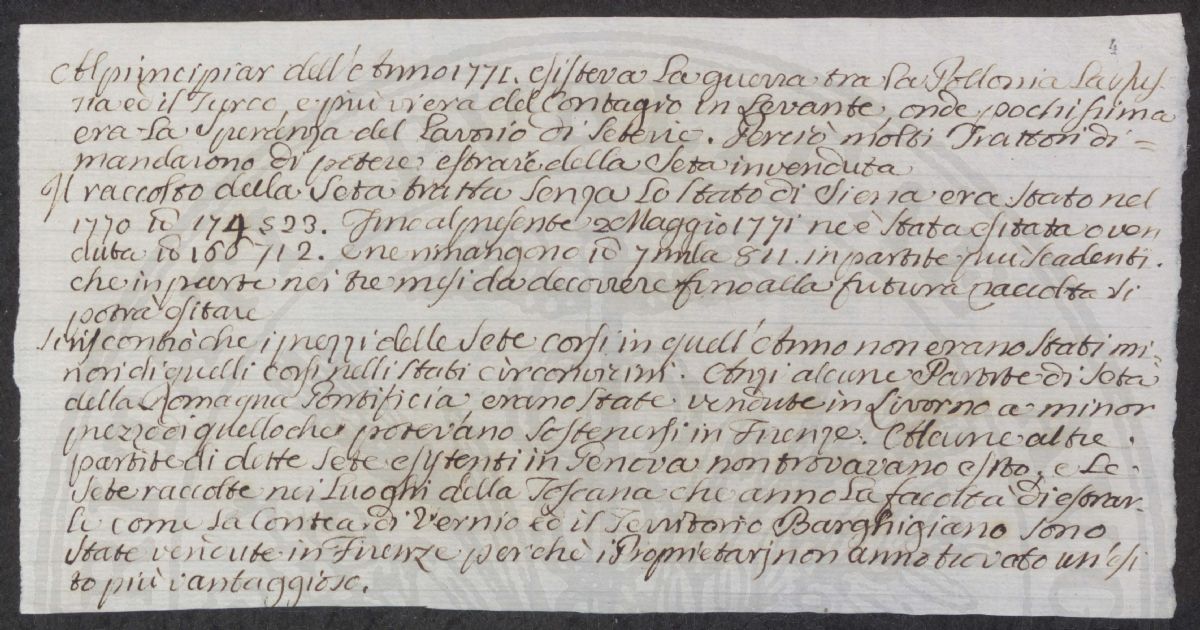 4
Al principiar dell'Anno 1771. esisteva la guerra tra la Pollonia la Rus-
sia ed il Turco, e più viera del Contagio in Levante, onde pochissima
era la speranza del Lavorio di Seterie. Perciò molti Trattori di=
mandarono di potere estrarre della Seta invenduta
Il raccolto della Seta tratta senza lo Stato di Siena era stato nel
1770 lb 174523. Fino al presente 2 Maggio 1771 ne è stata esitata o ven
duta lb 166712. e ne rimangono lb 7 mila 811. in partite più scadenti.
che in parte nei tre mesi da decorrere fino alla futura raccolta si
potrà esitare
Si riscontrò che i prezzi delle Sete corsi in quell'Anno non erano stati mi-
nori di quelli corsi nelli Stati circonvicini. Anzi alcune Partite di Seta
della Romagna Pontificia erano state vendute in Livorno a minor
prezzo di quello che potevano sostenersi in Firenze. Alcune altre
partite di dette Sete esistenti in Genova non trovavano esito, e Le
Sete raccolte nei Luoghi della Toscana che anno la facoltà di estrar-
le come la Contea di Vernio ed il Territorio Barghigiano sono
state vendute in Firenze perchè i Proprietarj non anno trovato un'esi
to più vantaggioso.